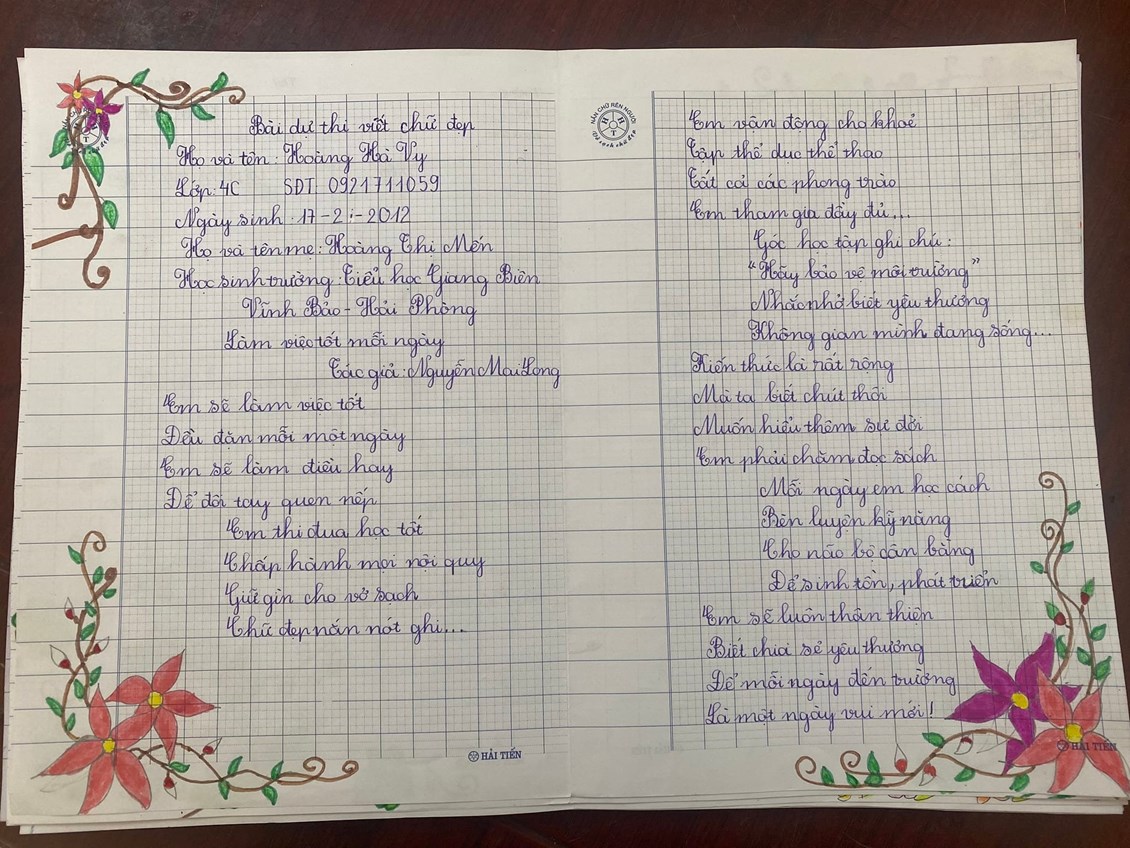 Bài dự thi viết chữ đẹp
Họ và tên: Hoàng Hà Vy
Lớp: 4C SDT 0921711059
Ngày sinh: 17-2-2012
Họ và tên mẹ: Hoàng Thị Mến
Học sinh trường: Tiểu học Giang Biên
Vĩnh Bảo - Hải Phòng
Làm việc tốt mỗi ngày
Tác giả: Nguyễn Mai Long
Em sẽ làm việc tốt
Đều đặn mỗi một ngày
Em sẽ làm điều hay
Để đôi tay quen nếp
Em thi đua học tốt
Chấp hành mọi nội quy
Giữ gìn cho vở sạch
Chữ đẹp nắn nót ghi...
HẢI TIẾN
NẮN CHỮ RÈN NGƯỜI
Em vận động cho khoẻ
Tập thể dục thể thao
Tất cả các phong trào
Em tham gia đầy đủ...
Góc học tập ghi chú:
"Hãy bảo vệ môi trường"
Nhắc nhở biết yêu thương
Không gian mình đang sống...
Kiến thức là rất rộng
Mà ta biết chút thôi
Muốn hiểu thêm sự đời
Em phải chăm đọc sách
Mỗi ngày em học cách
Rèn luyện kỹ năng
Cho não bộ cân bằng
Để sinh tồn, phát triển
Em sẽ luôn thân thiện
Biết chia sẻ yêu thương
Để mỗi ngày đến trường
Là một ngày vui mới!
HẢI TIẾN